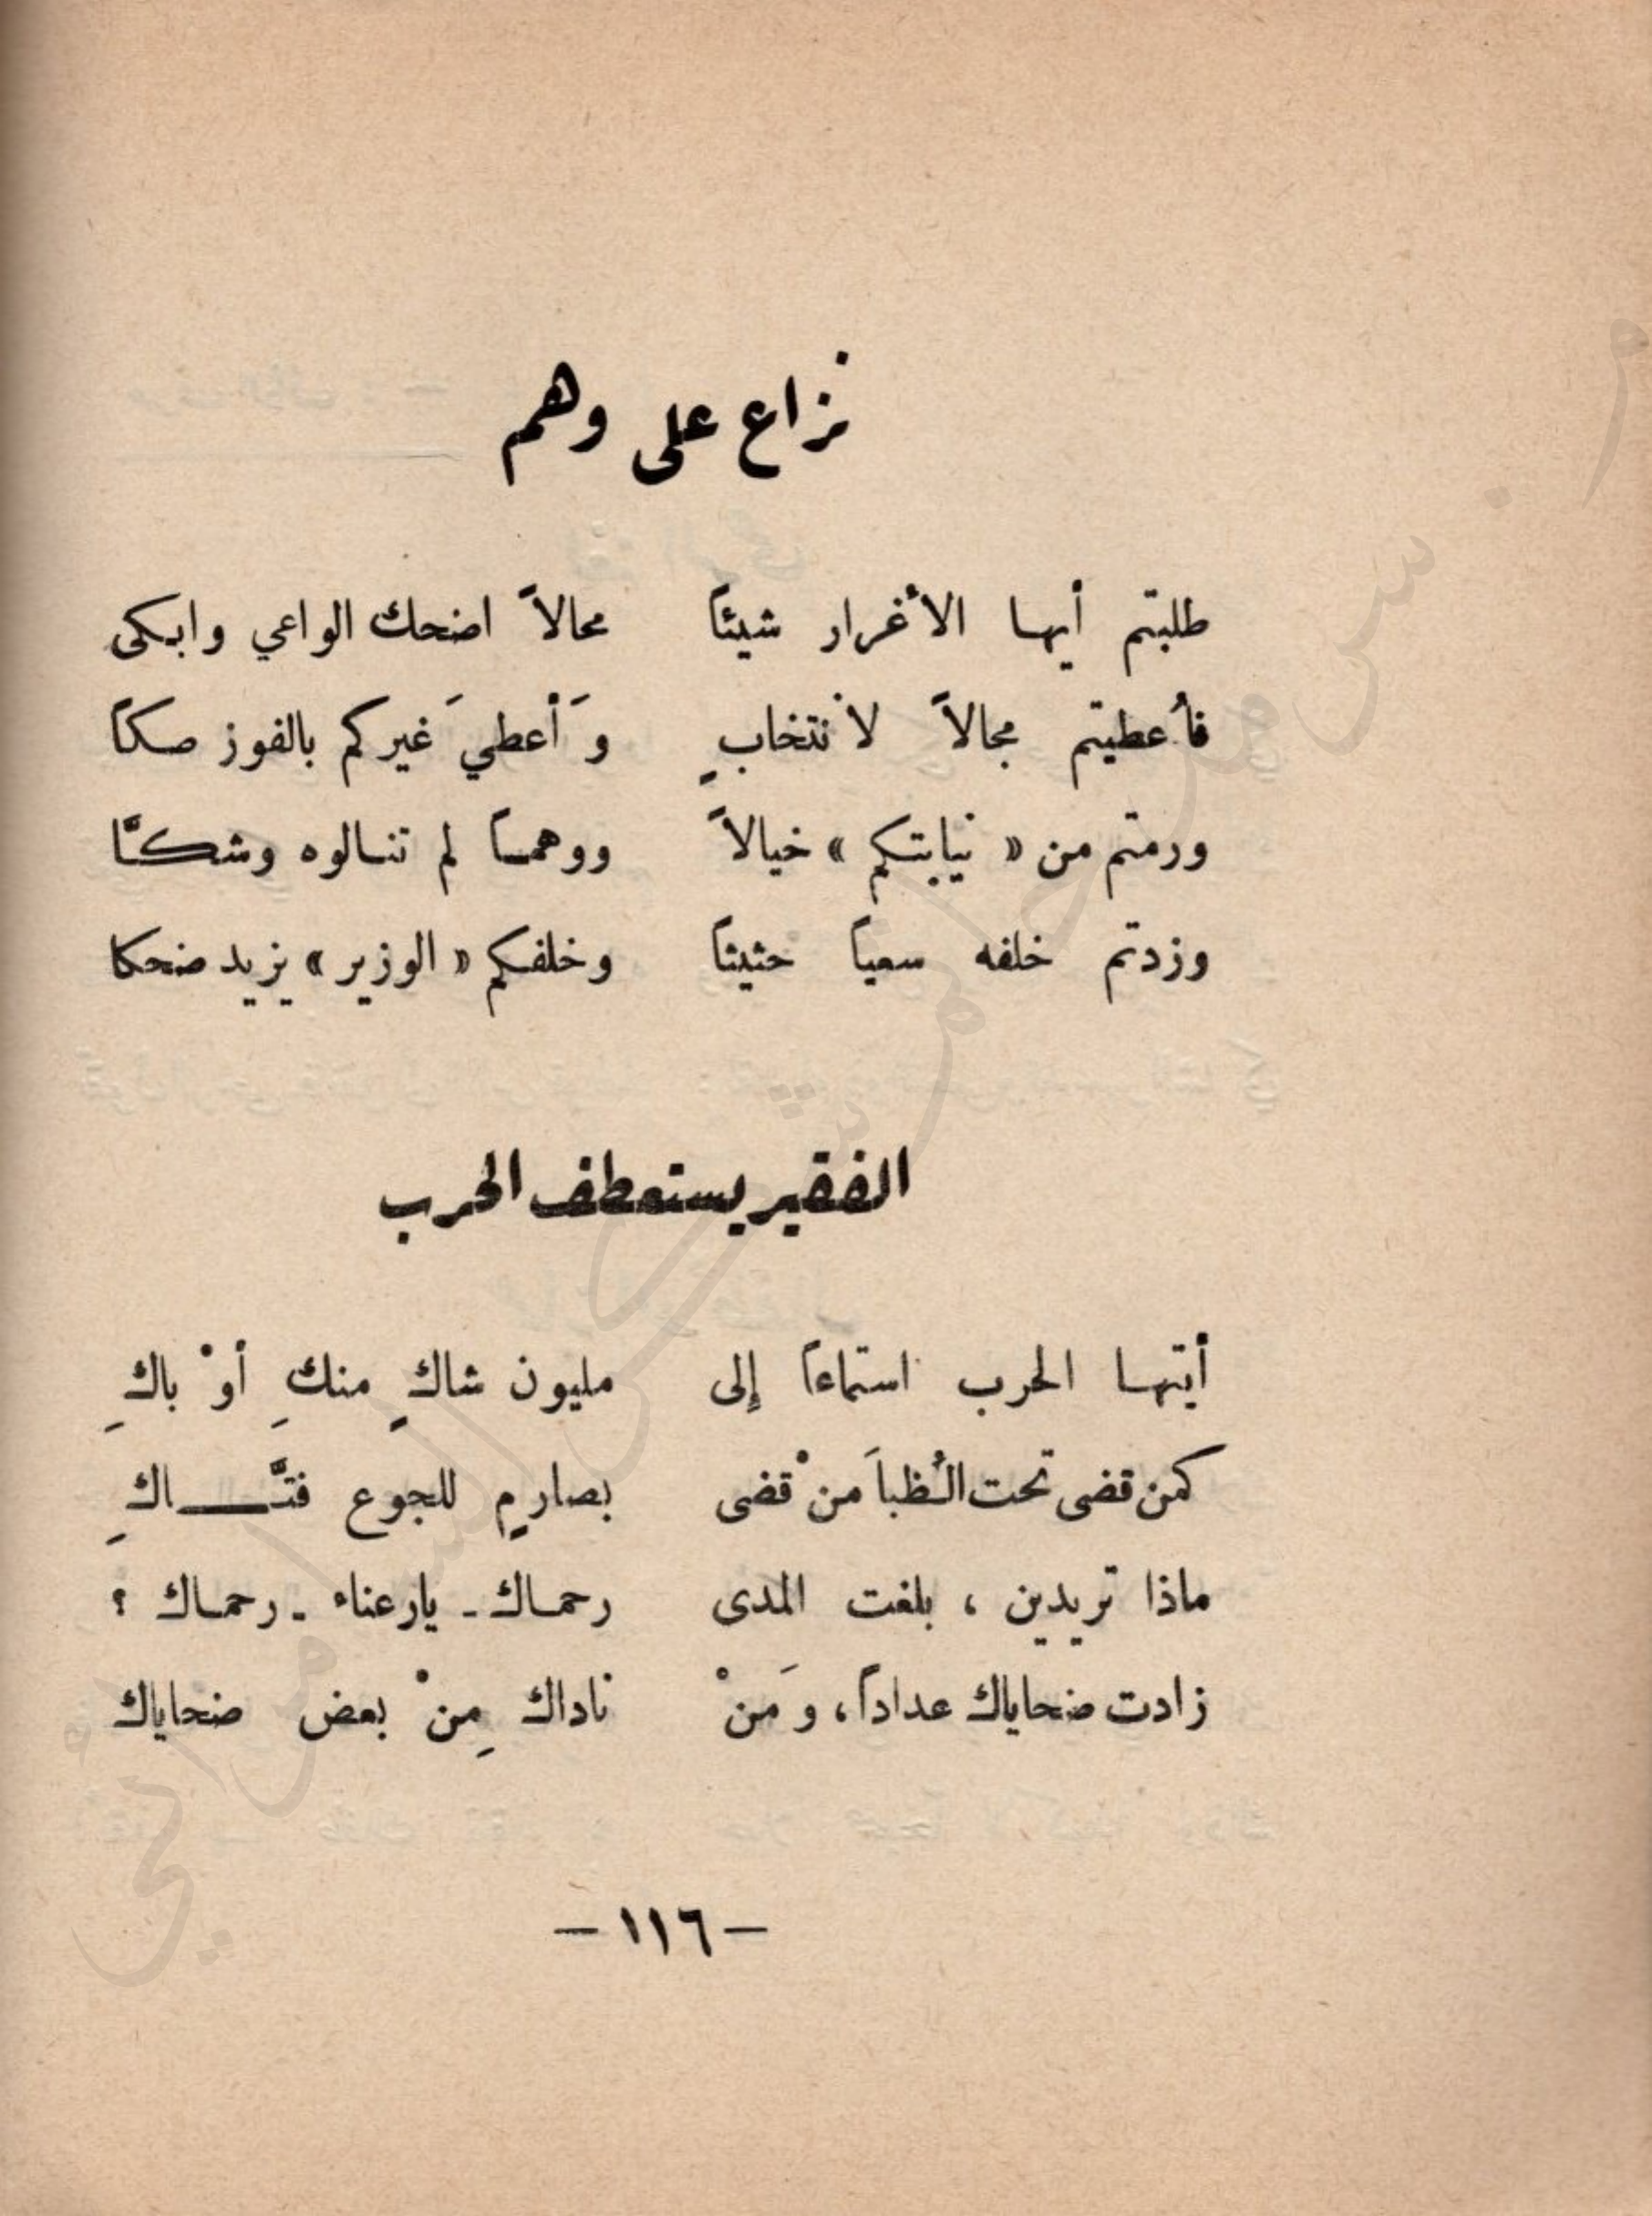 نزاع على وهم
طلبتم أيها الأغرار شيئاً محالاً اضحك الواعي وابكى
فأُعطيتم مجالاً لانتخابٍ وَأعطيَ غيركم بالفوز صكاً
ورمتم من « نيابتكم » خيالاً ووهماً لم تنالوه وشكاً
وزدتم خلفه سعياً حثيثاً وخلفكم « الوزير » يزيد ضحكا
الفقير يستعطف الحرب
أيتها الحرب استماعاً إلى مليون شاكٍ منكِ أوْ باكِ
كمن قضى تحت الظُباَ منْ قضى بصارمٍ للجوع فتَّـــاكِ
ماذا تريدين ، بلغت المدى رحماك - يارعناء - رحماك ؟
زادت ضحاياك عداداً ، وَمنْ ناداك مِنْ بعض ضحاياك
– ١١٦ –